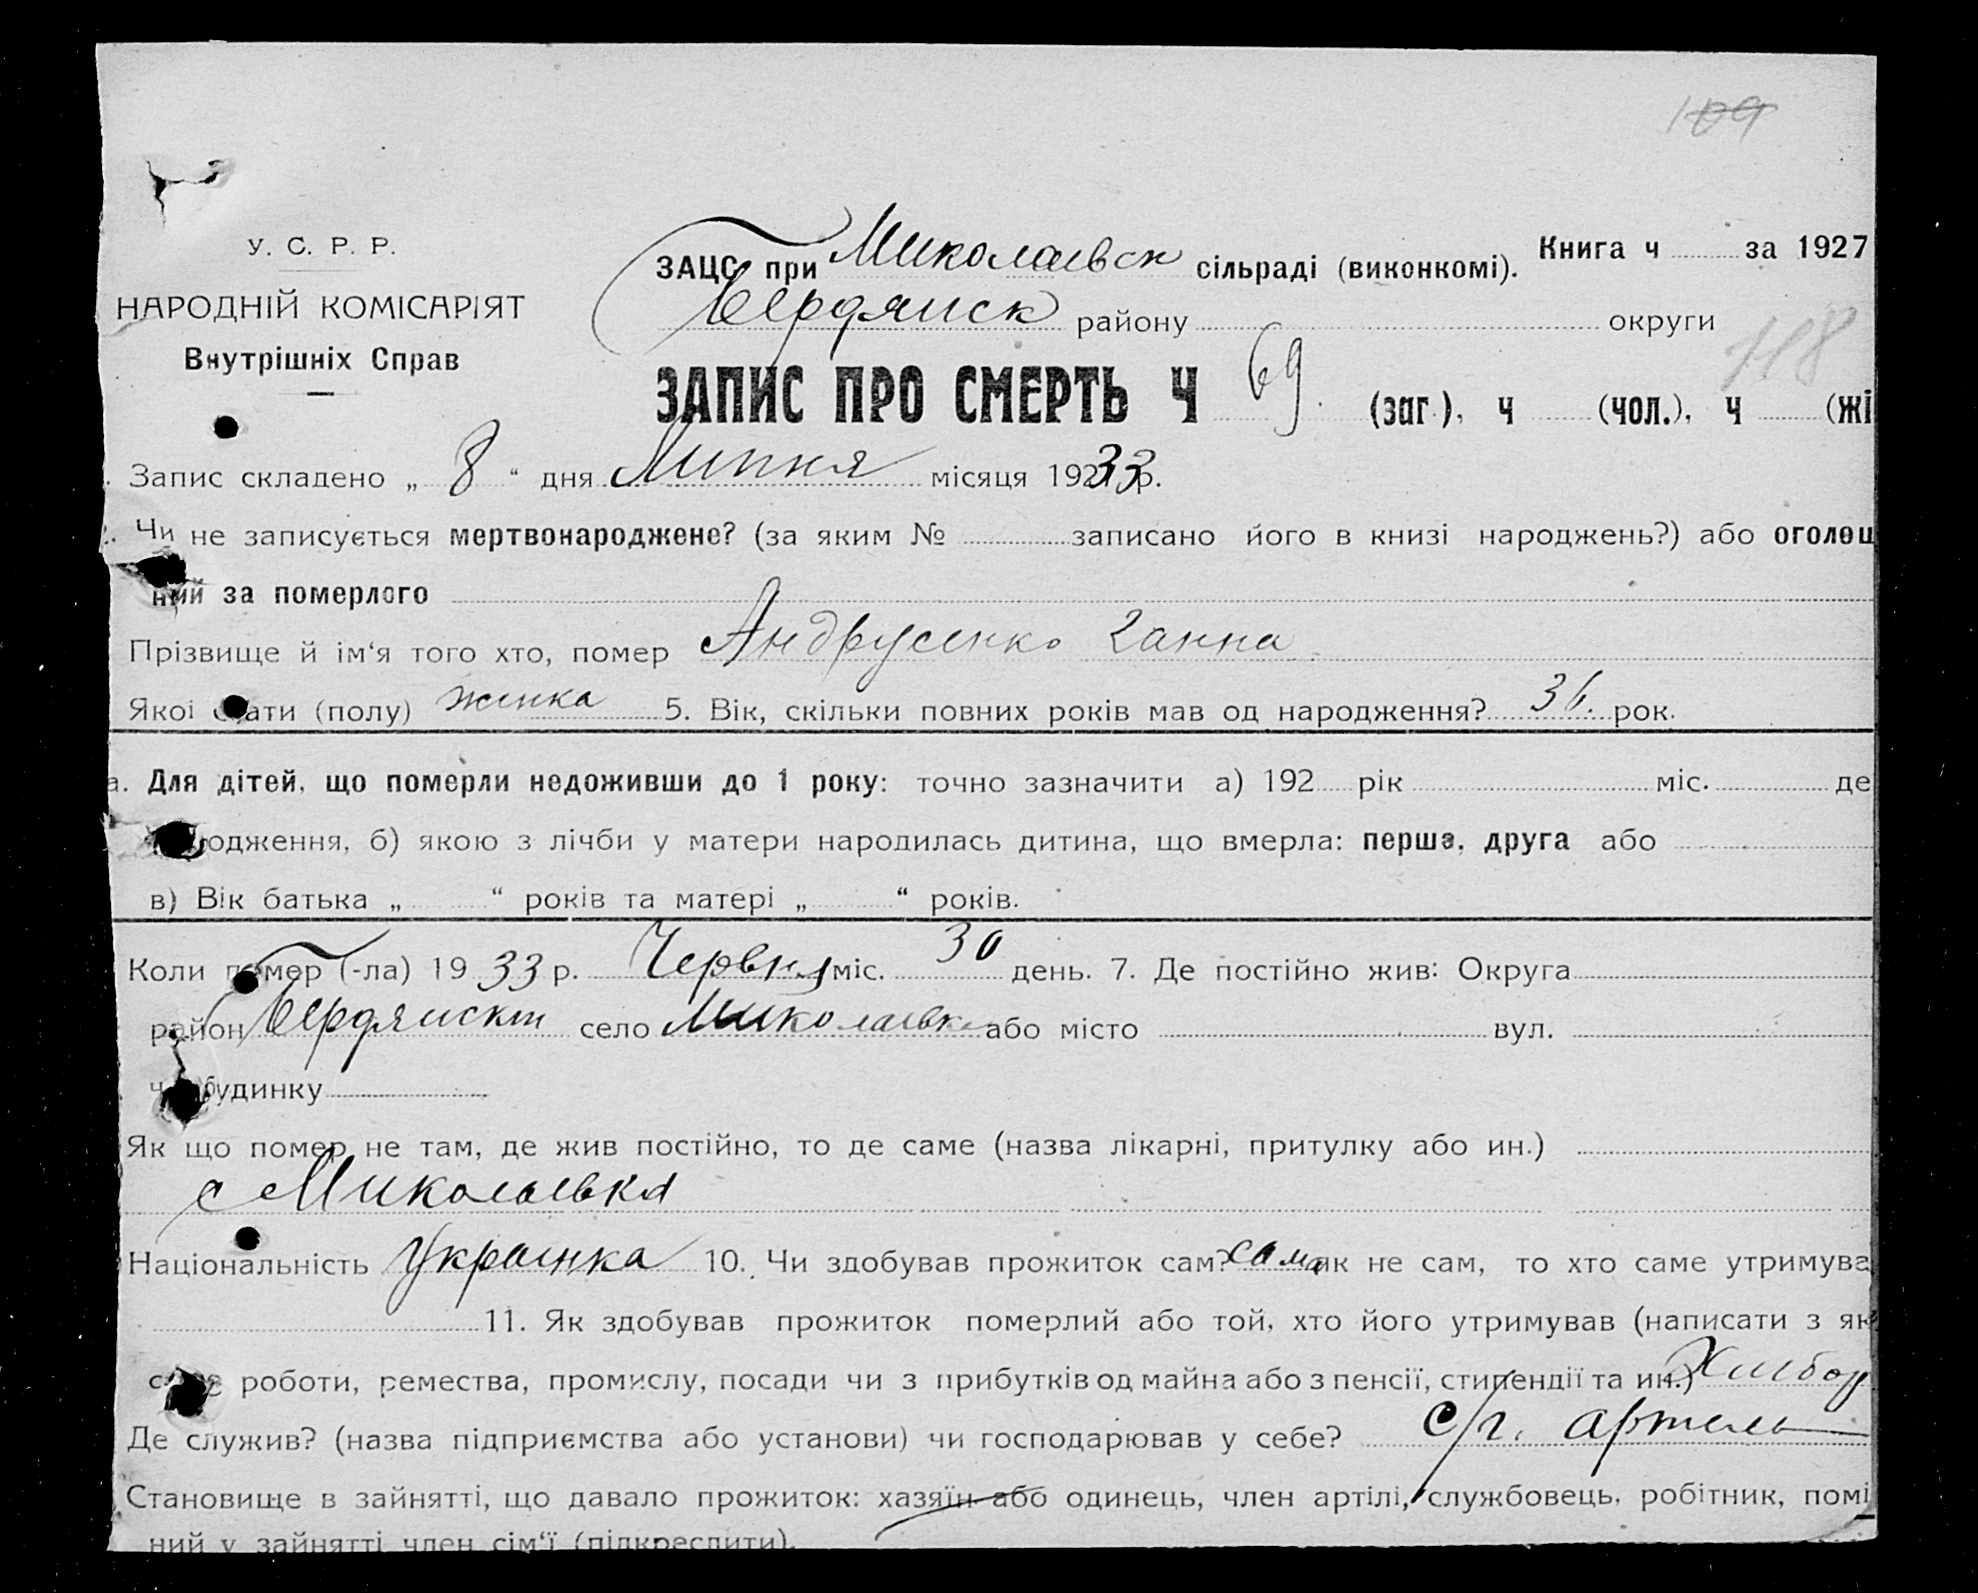 109
У. С. Р. Р.
НАРОДНІЙ КОМІСАРІЯТ
Внутрішніх Справ
ЗАЦС при Миколаевск сільраді (виконкомі). Книга ч за 1927
Бердянск району округи
118
ЗАПИС ПРО СМЕРТЬ Ч 69. (заг.), ч (чол.), ч (жі
Запис складено „ 8 “ дня Липня місяця 1933 р.
Чи не записується мертвонароджене? (за яким № записано його в книзі народжень?) або оголош
ний за померлого
Прізвище й ім‘я того хто, помер Андрусенко Ганна
Якої стати (полу) жинка 5. Вік, скільки повних років мав од народження? 36. рок.
а. Для дітей, що померли недоживши до 1 року: точно зазначити а) 192 рік міс. де
одження, б) якою з лічби у матери народилась дитина, що вмерла: перша, друга або
в) Вік батька „ “ років та матері „ “ років.
Коли помер (-ла) 1933 р. Червня міс. 30 день. 7. Де постійно жив: Округа
район Бердянскш село Миколаевка або місто вул.
ч. будинку
Як що помер не там, де жив постійно, то де саме (назва лікарні, притулку або ин.)
с Миколаевка
Національність Украинка 10. Чи здобував прожиток сам? сама як не сам, то хто саме утримува
11. Як здобував прожиток померлий або той, хто його утримував (написати з як
роботи, ремества, промислу, посади чи з прибутків од майна або з пенсії, стипендії та ин.) Хлибор
Де служив? (назва підприємства або установи) чи господарював у себе? с/г. артель
Становище в зайнятті, що давало прожиток: хазяїн або одинець, член артілі, службовець, робітник, помі
ний у зайнятті член сім‘ї (підкреслити).